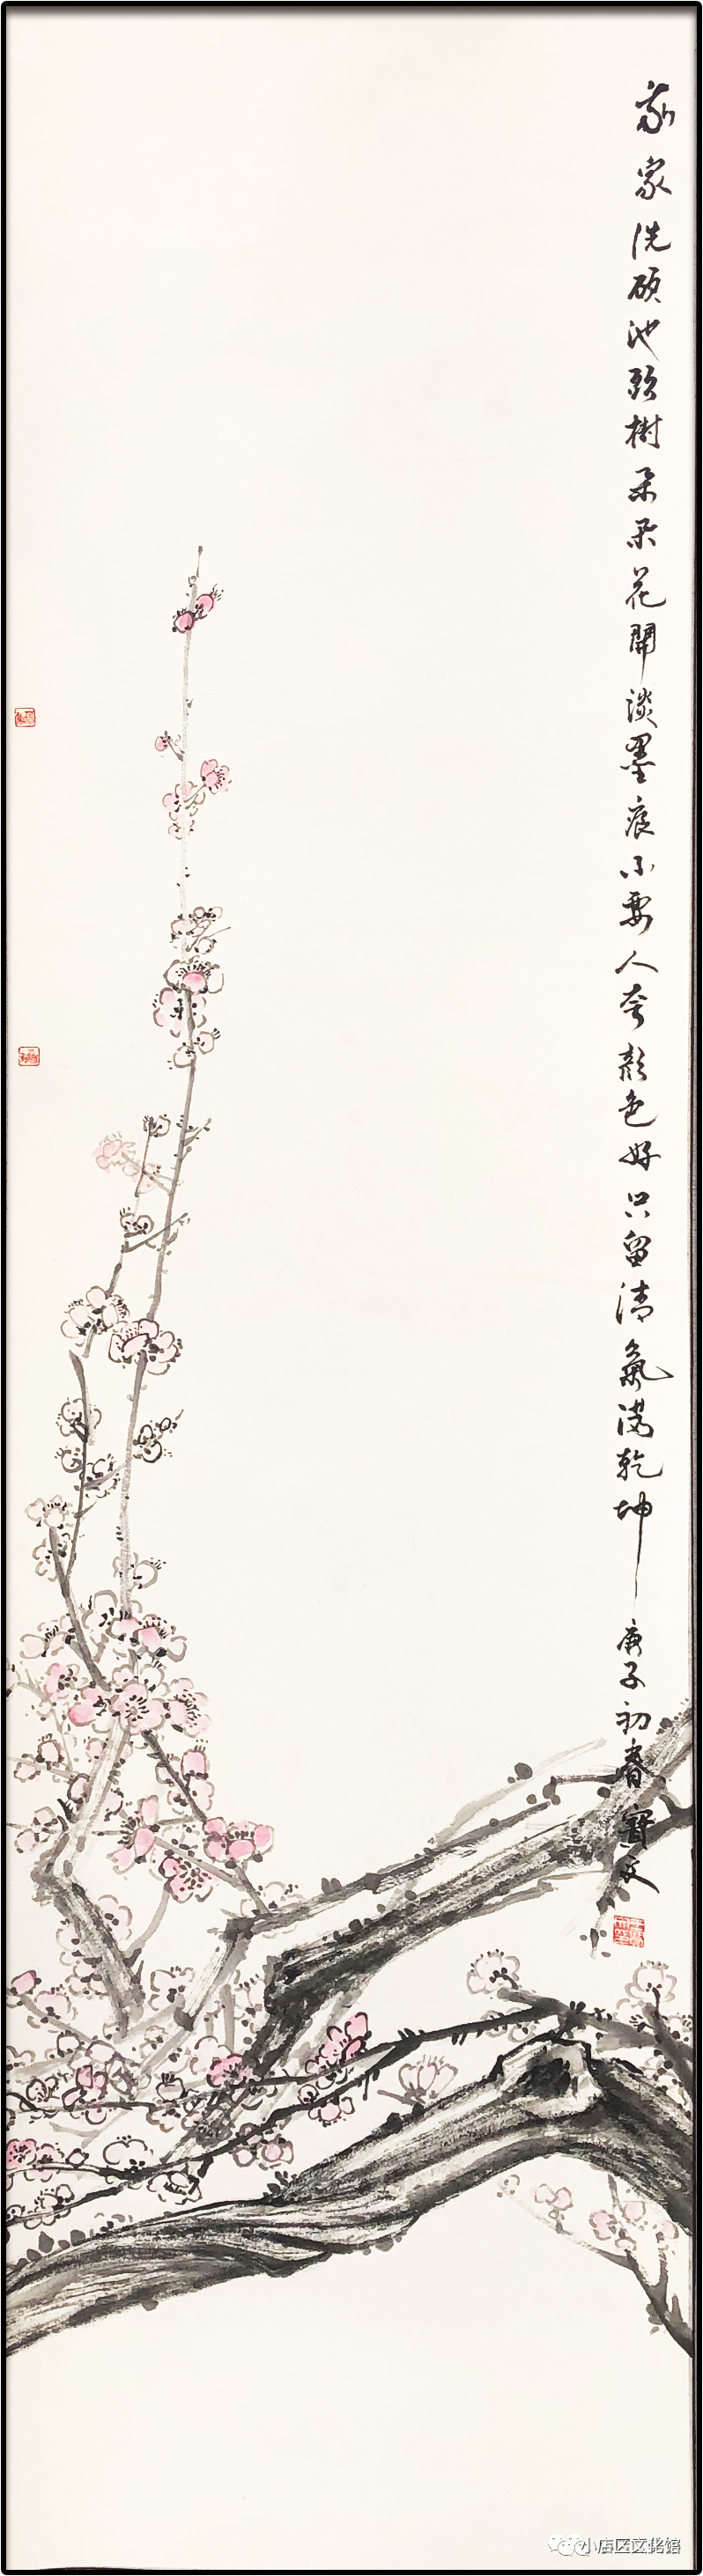 我家洗硯池頭樹朵朵花開淡墨痕不要人夸顏色好只留清氣滿乾坤 庚子初春寶文
小店区文化馆